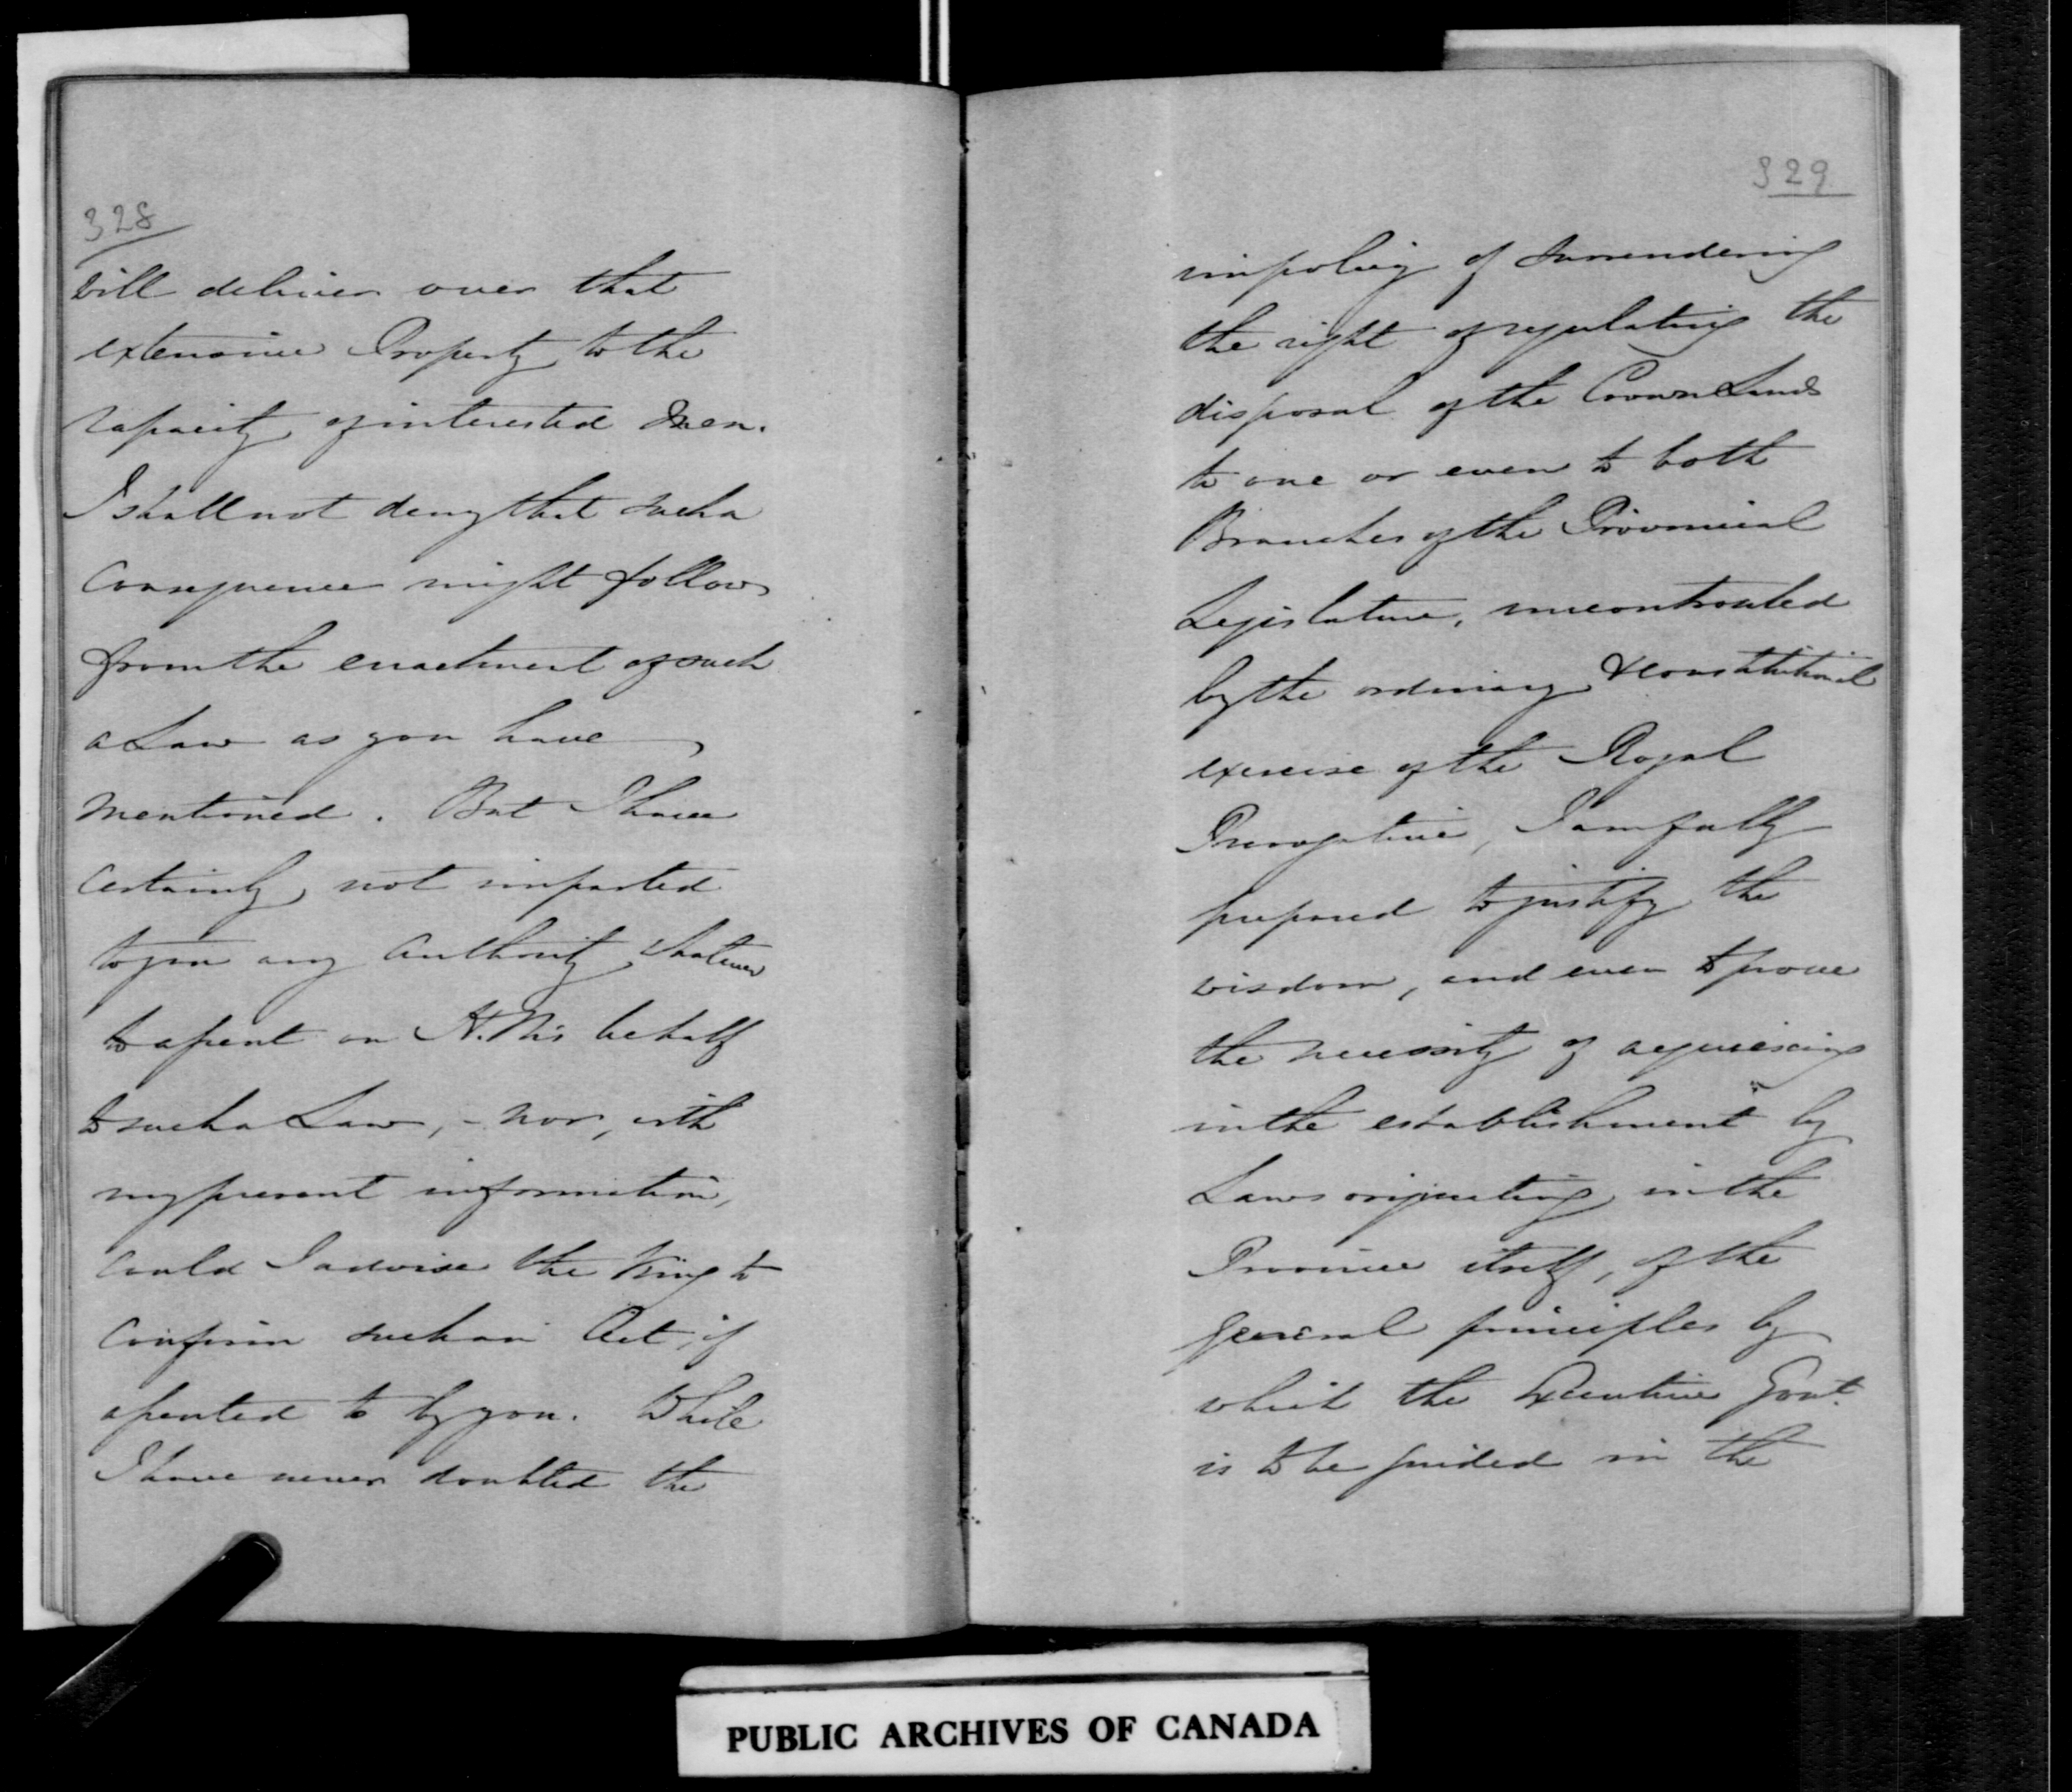 328
will deliver over that
extensive Property to the
rapacity of interested Men.
I shall not deny that such a
consequence might follow
from the enactment of such
a Law as you have
mentioned. But I have
certainly not imparted
to you any authority whatever
to assent on H.M's behalf
to such a Law, - nor, with
my present information,
could I advise the King to
confirm such an Act, if
assented to by you. While
I have never doubted the
329
impolicy of surrendering
the right of regulating the
disposal of the Crown Lands
to one or even to both
Branches of the Provincial
Legislature, uncontrouled
by the ordinary & constitutional
exercise of the Royal
Prerogative, I am fully
prepared to justify the
wisdom, and even to prove
the necessity of acquiescing
in the establishment by
Laws originating in the
Province itself, of the
general principles by
which the Executive Govt.
is to be guided in the
PUBLIC ARCHIVES OF CANADA